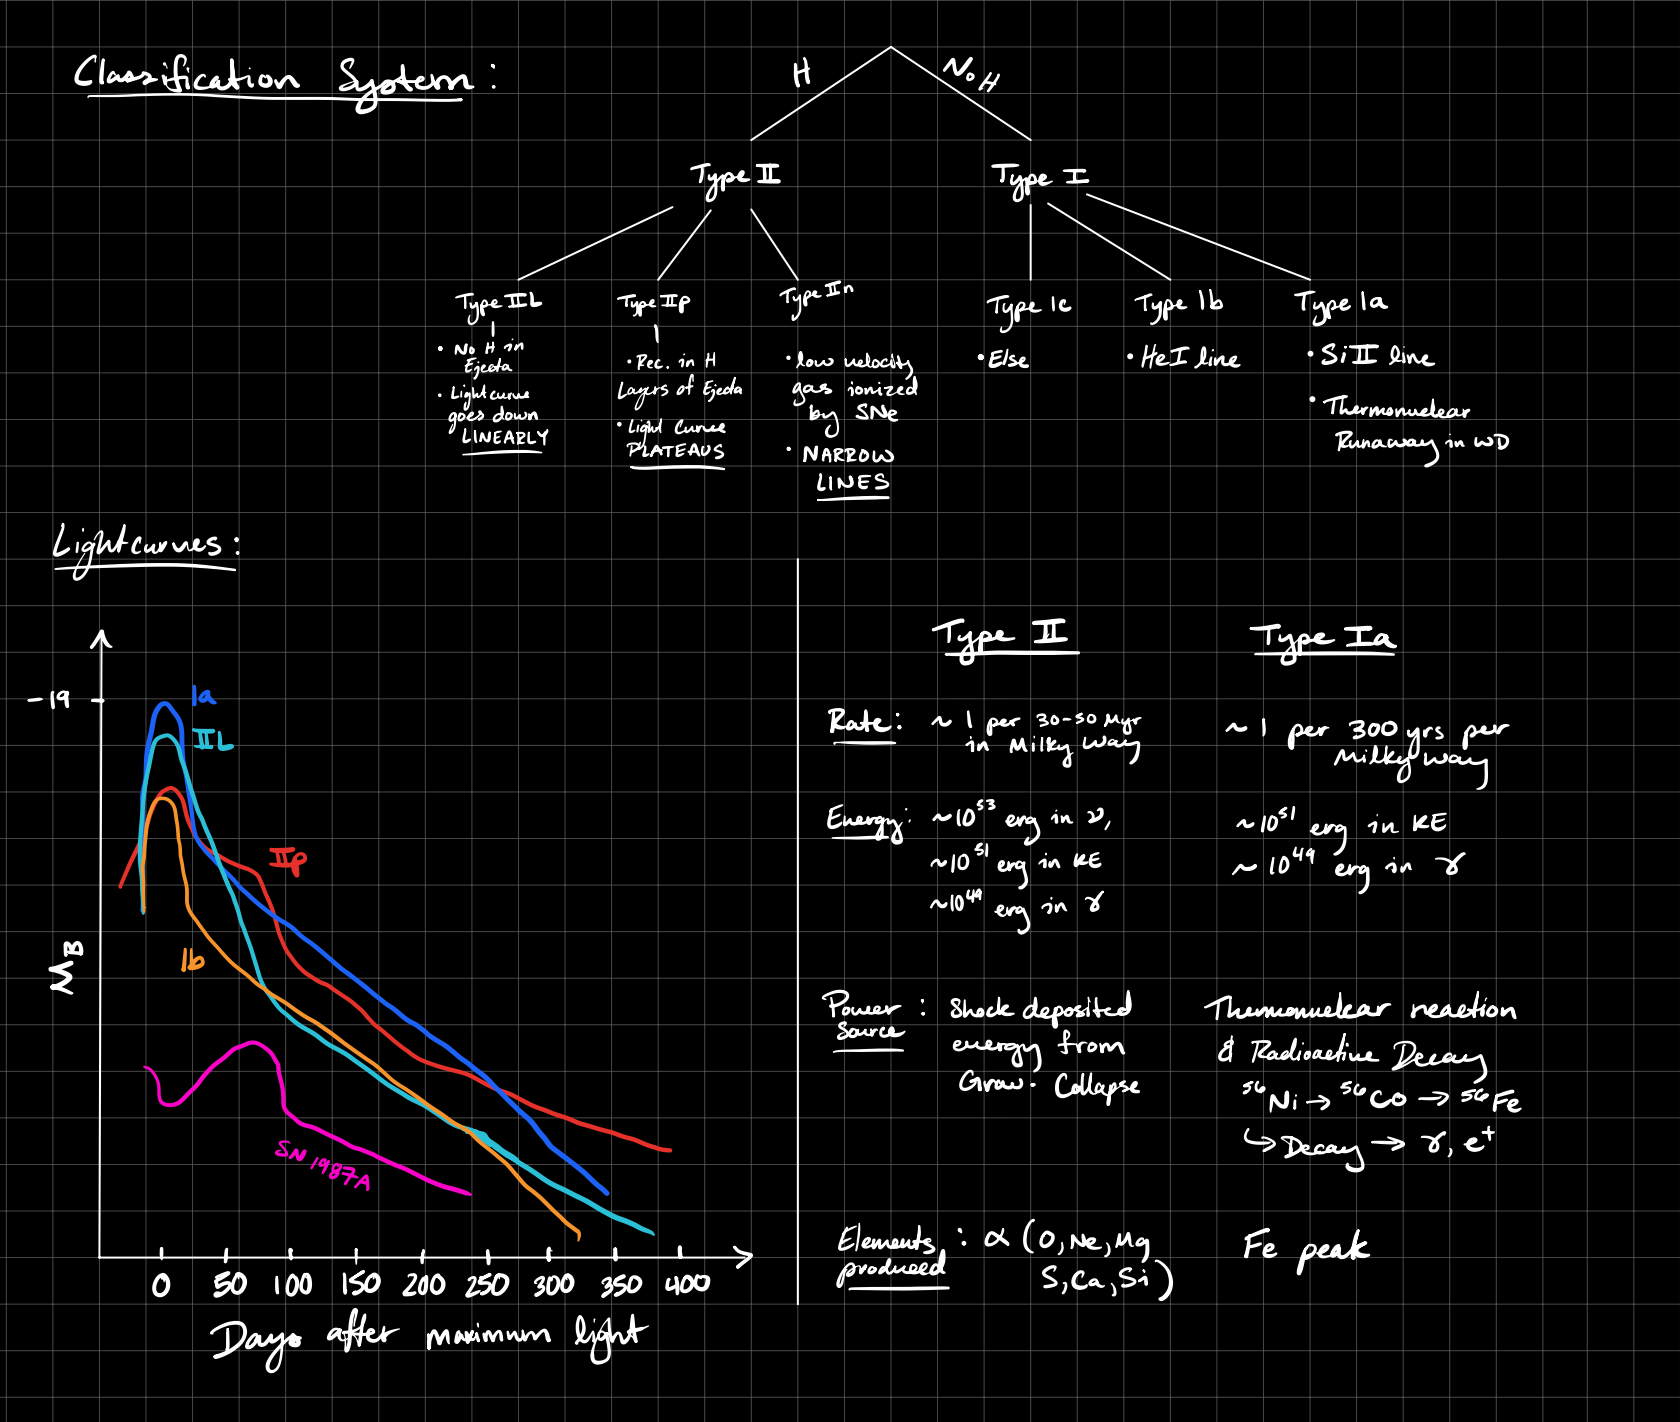 Classification System:
H
No H
Type II
Type I
Type IIL
• No H in
Ejecta
• Lightcurve
goes down
LINEARLY
Type IIp
• Rec. in H
Layers of Ejecta
• Light Curve
PLATEAUS
Type IIn
• low velocity
gas ionized
by SNe
• NARROW
LINES
Type Ic
• Else
Type Ib
• HeI line
Type Ia
• SiII line
• Thermonuclear
Runaway in WD
Lightcurves:
-19
Ia
IIL
IIp
Ib
SN 1987A
MB
0 50 100 150 200 250 300 350 400
Days after maximum light
Type II
Type Ia
Rate: ~ 1 per 30-50 Myr
in Milky Way
~ 1 per 300 yrs per
Milky Way
Energy: ~10⁵³ erg in ν,
~10⁵¹ erg in KE
~10⁴⁹ erg in γ
~10⁵¹ erg in KE
~ 10⁴⁹ erg in γ
Power
Source : Shock deposited
energy from
Grav. Collapse
Thermonuclear reaction
& Radioactive Decay
⁵⁶Ni → ⁵⁶CO → ⁵⁶Fe
↳ Decay → γ, e⁺
Elements
produced : α (O, Ne, Mg
S, Ca, Si)
Fe peak